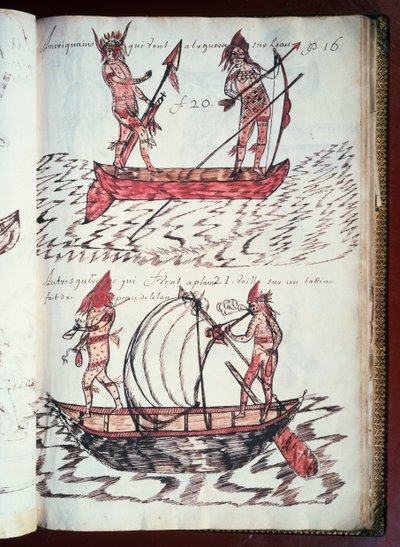 Ameriquains qui vont a la guerre sur Leau p. 16
f 20.
Autres qui vont a plaine voille sur un batteau
fait de peau de